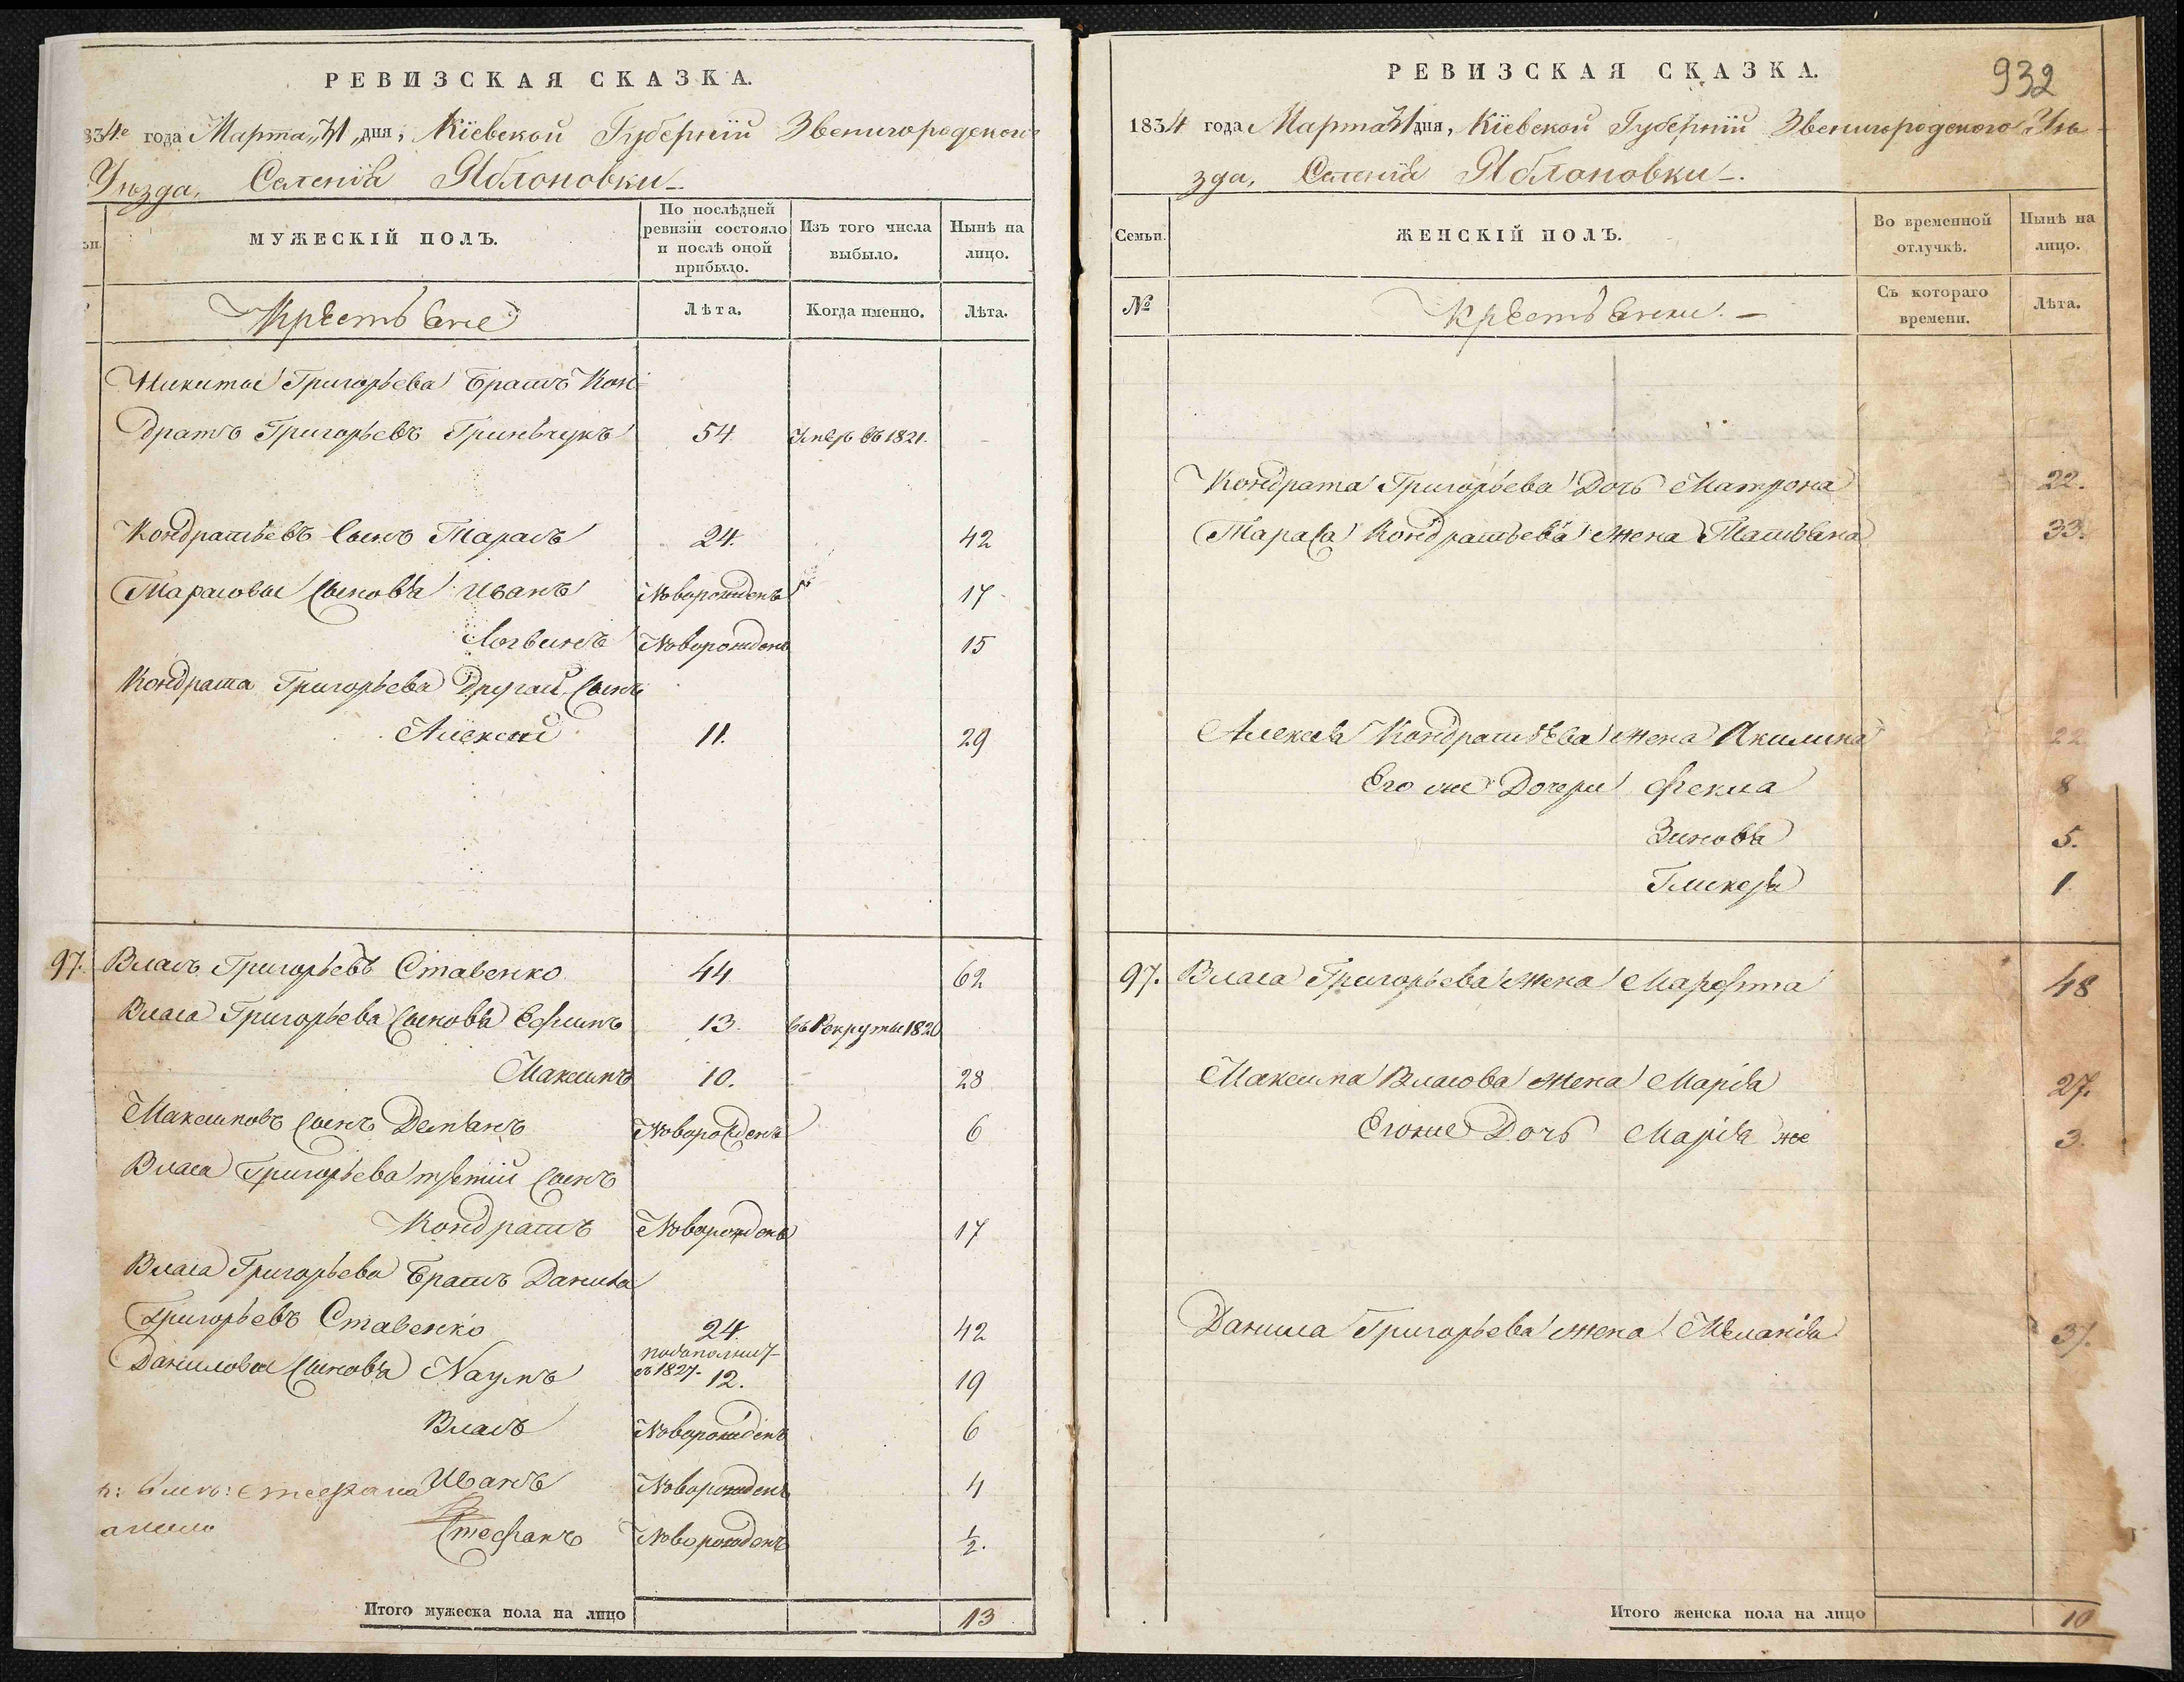 РЕВИЗСКАЯ СКАЗКА.
834е года Марта „31„ дня, Кіевской Губерніи Звенигородского
Уѣзда, Селенія Яблоновки
МУЖЕСКІЙ ПОЛЪ.
По послѣдней ревизіи состояло и послѣ оной прибыло.
Изъ того числа выбыло.
Нынѣ на лицо.
Крестьяне
Лѣта.
Когда именно.
Лѣта.
Никиты Григорьева братъ Кон
дратъ Григорьевъ Гриньчукъ 54. Умеръ въ 1821.
Кондратьевъ Сынъ Тарасъ 24. 42
Тарасовы Сыновья Иванъ Новорожденъ 17
Логвинъ Новорожденъ 15
Кондрата Григорьева Другой Сынъ
Алексей 11. 29
97. Власъ Григорьевъ Ставенко 44 62
Власа Григорьева Сыновья Ефимъ 13. въ Рекруты 1820
Максимъ 10. 28
Максимовъ Сынъ Демьянъ Новорожденъ 6
Власа Григорьева третій Сынъ
Кондратъ Новорожденъ 17
Власа Григорьева братъ Данила
Григорьевъ Ставенко 24 42
Даниловы Сыновья Наумъ
въ 1827. 12. 19
Власъ Новорожденъ 6
Иванъ Новорожденъ 4
Стефанъ Новорожденъ ½.
Итого мужеска пола на лицо 13
932
РЕВИЗСКАЯ СКАЗКА.
1834 года Марта 31 дня, Кіевской Губерніи Звенигородского Уѣ-
зда, Селенія Яблоновки.
Семьи.
ЖЕНСКІЙ ПОЛЪ.
Во временной отлучкѣ.
Нынѣ на лицо.
№
Крестьянки.
Съ котораго времени.
Лѣта.
Кондрата Григорьева Дочь Матрона 22.
Тараса Кондратьева жена Татьяна 33.
Алексея Кондратьева жена Акилина 22
Его же Дочери Фекла 8
Зиновья 5.
Гликерья 1
97. Власа Григорьева жена Марфта 48
Максима Власова жена Марія 27.
Егоже Дочь Марія же 3.
Данила Григорьева жена Меланія 37.
Итого женска пола на лицо 10